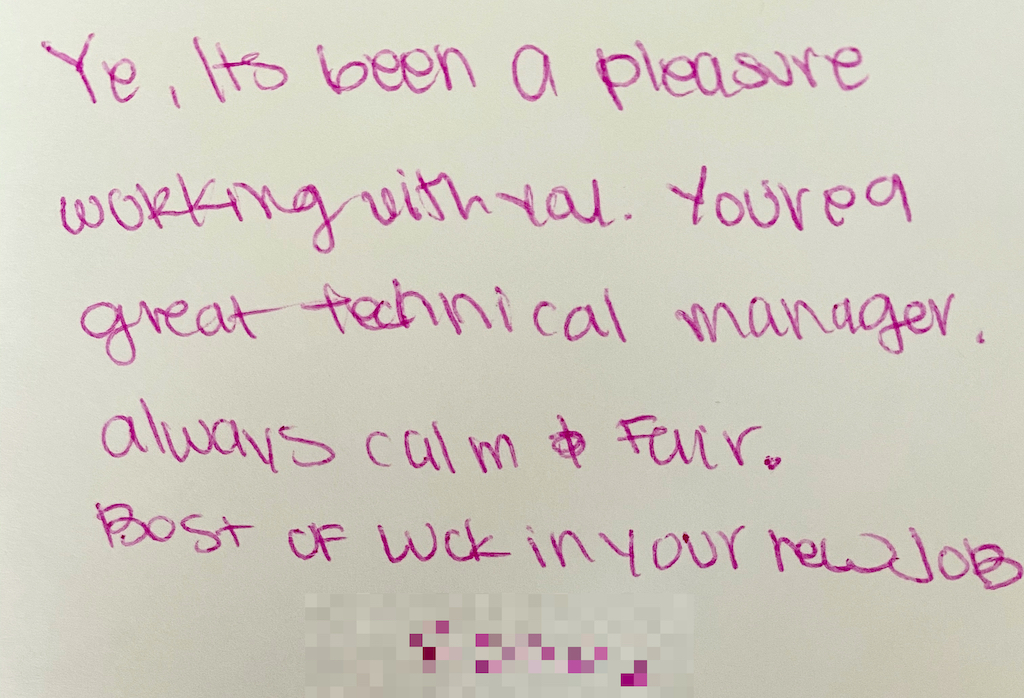 Ye, Its been a pleasure
working with you. Youre a
great technical manager.
always calm & Fair.
Best of luck in your new JOB